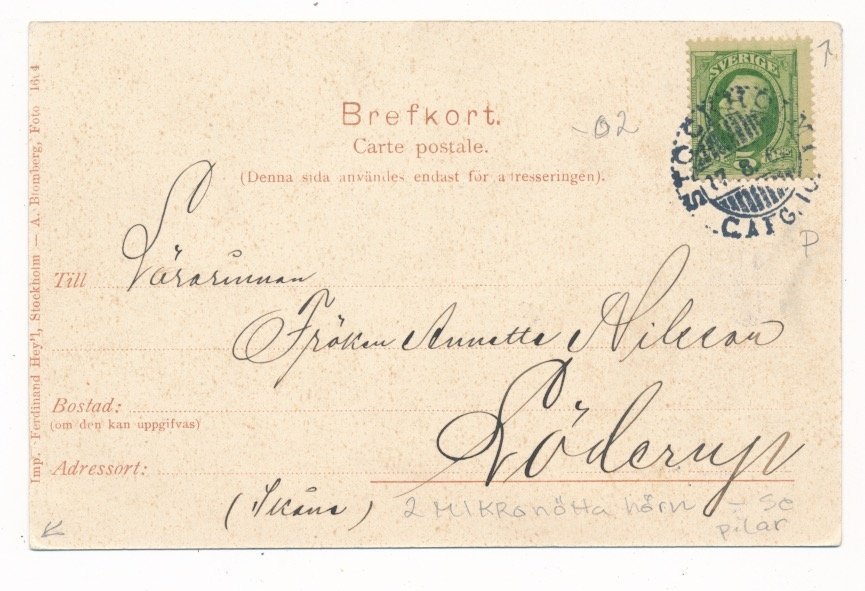 SVERIGE
5
Brefkort.
-02
Carte postale.
(Denna sida användes endast för adresseringen).
17. 8.
P
Till Lärarinnan
Fröken Annette Nilsson
Bostad:
(om den kan uppgifvas)
Adressort: Löderup
(Skåne)
2 MIKROnötta hörn - se
pilar
Imp. Ferdinand Hey'l, Stockholm — A. Blomberg, Foto